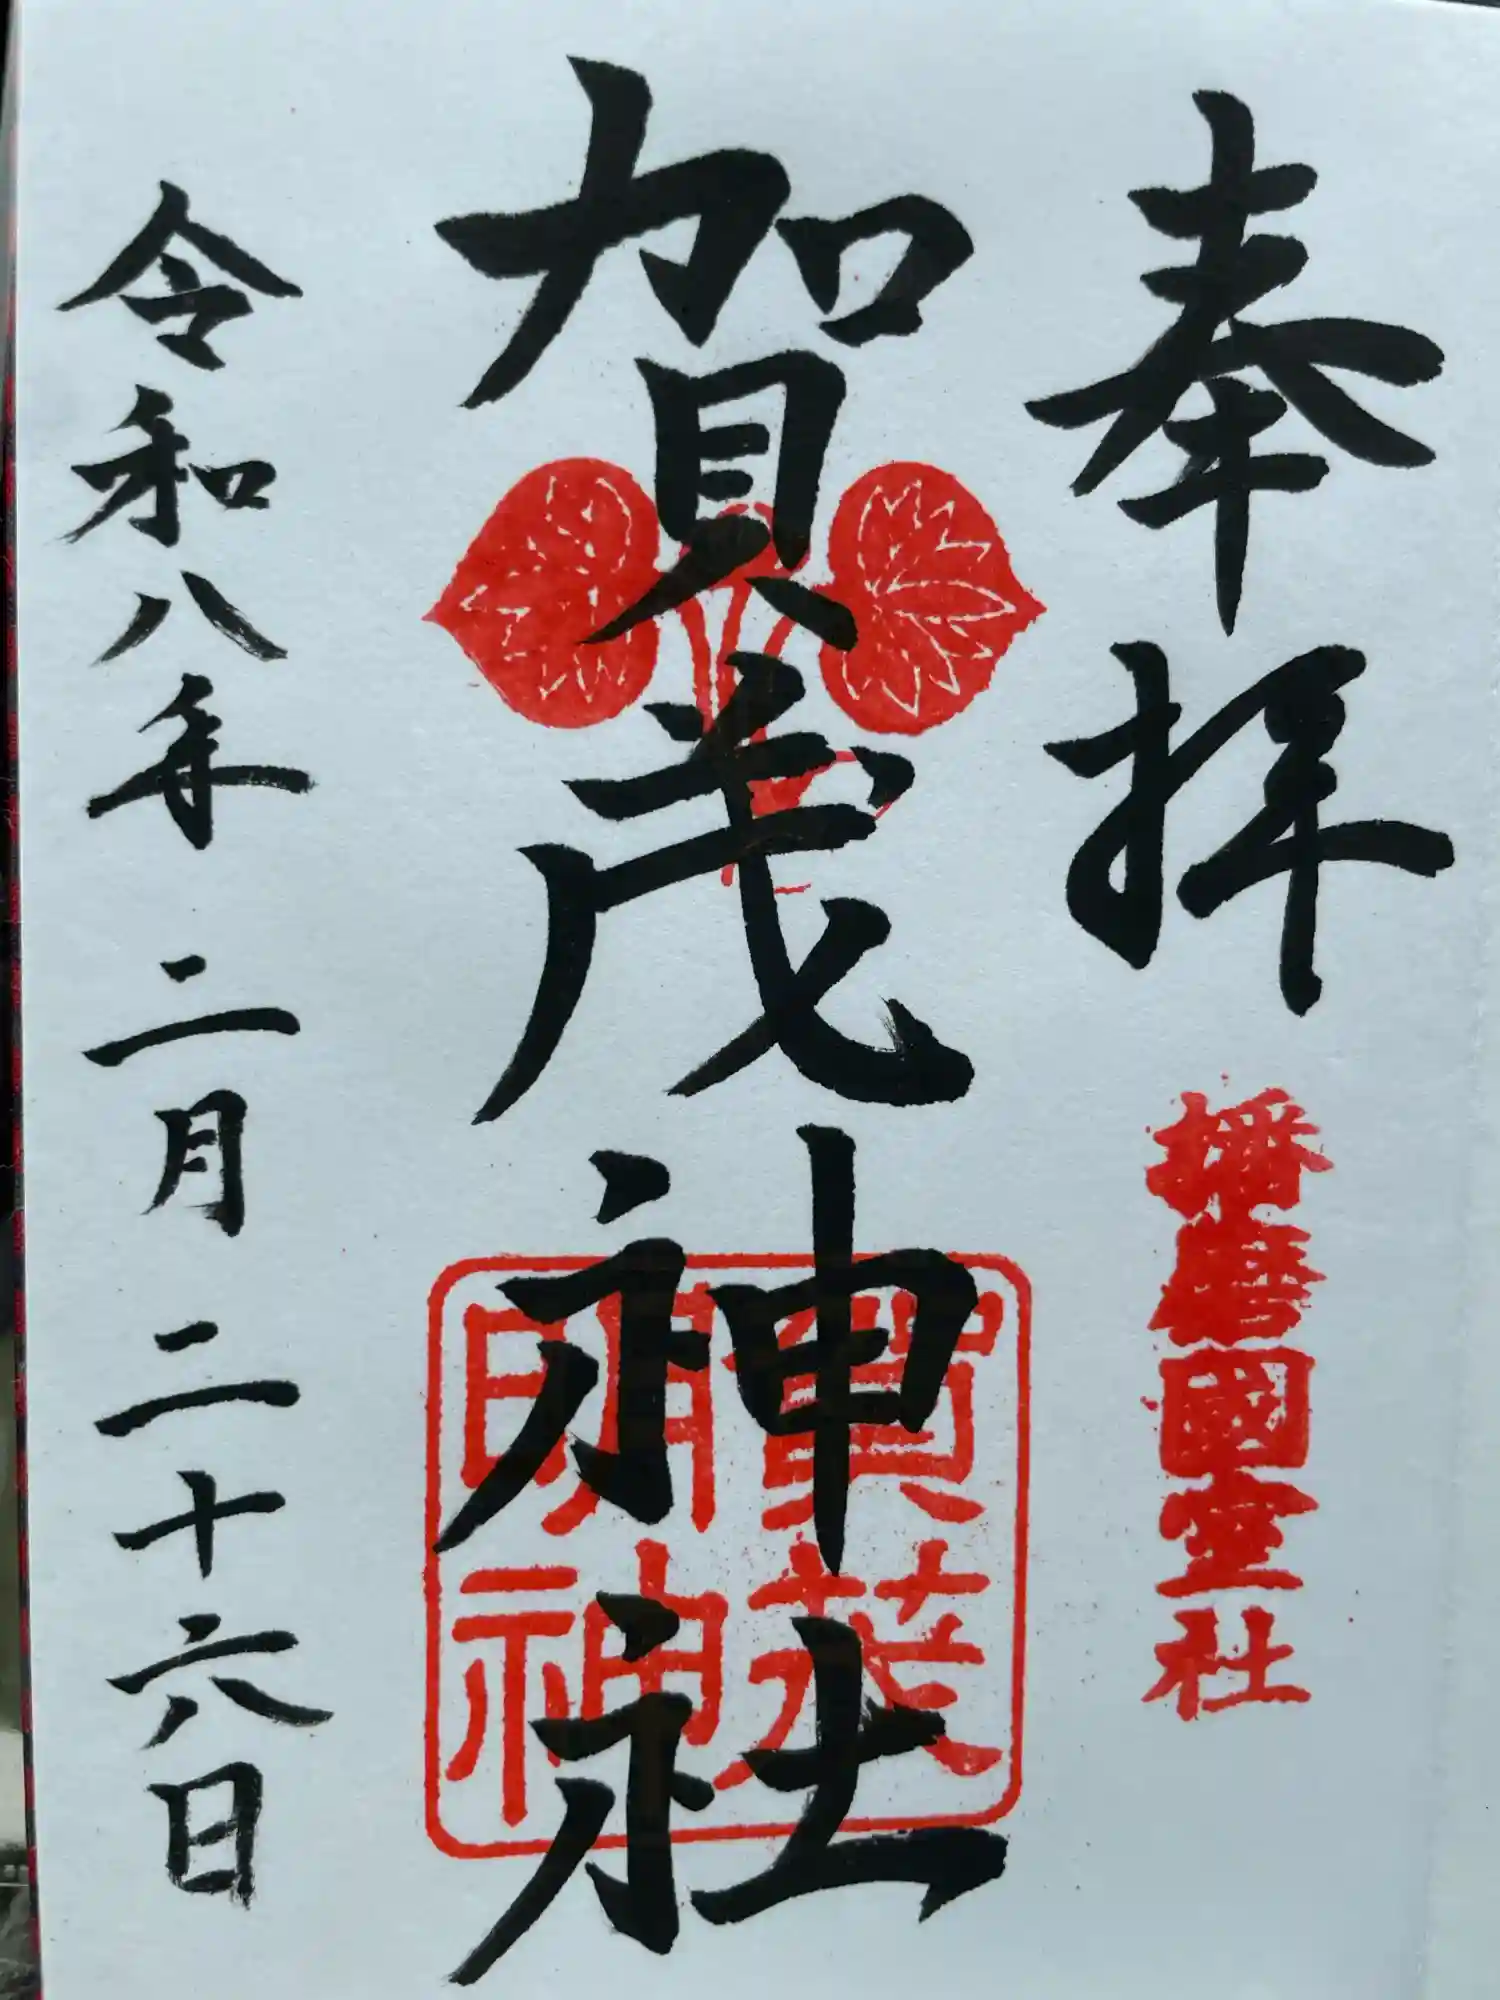 奉拝
播磨國室社
賀茂神社
賀茂
明神
令和八年二月二十六日